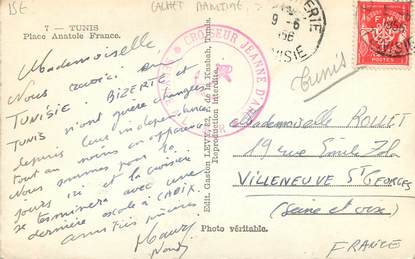 15E
CACHET MARITIME
7 – TUNIS
Place Anatole France.
Mademoiselle
Nous
TUNISIE BIZERTE et
TUNIS n'ont guère changées
depuis leur indépendance
tout au moins en apparence
Nous sommes pour 20
jours ici et la croisière
se terminera avec une
dernière escale à CADIX.
Amitiés
CROISEUR JEANNE D'ARC
Edit. Gaston LEVY, 22, R. de la Kasbah, Tunis
Reproduction interdite.
Photo véritable.
9-6
Tunis
F M
POSTES
Mademoiselle ROLLET
19 rue Emile Zola
VILLENEUVE ST GEORGES
(Seine et oise)
FRANCE